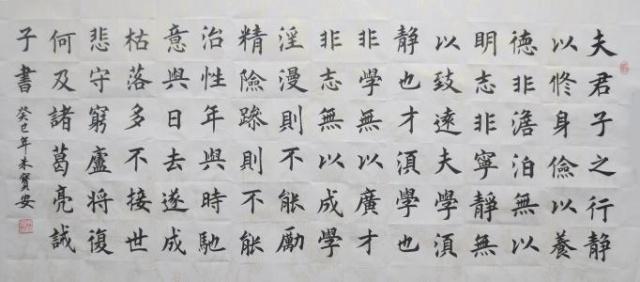 夫君子之行靜
以修身儉以養
德非澹泊無以
明志非寧靜無
以致遠夫學須
靜也才須學也
非學無以廣才
非志無以成學
淫漫則不能勵
精險躁則不能
治性年與時馳
意與日去遂成
枯落多不接世
悲守窮廬將復
何及諸葛亮誡
子書 癸巳年朱寶安